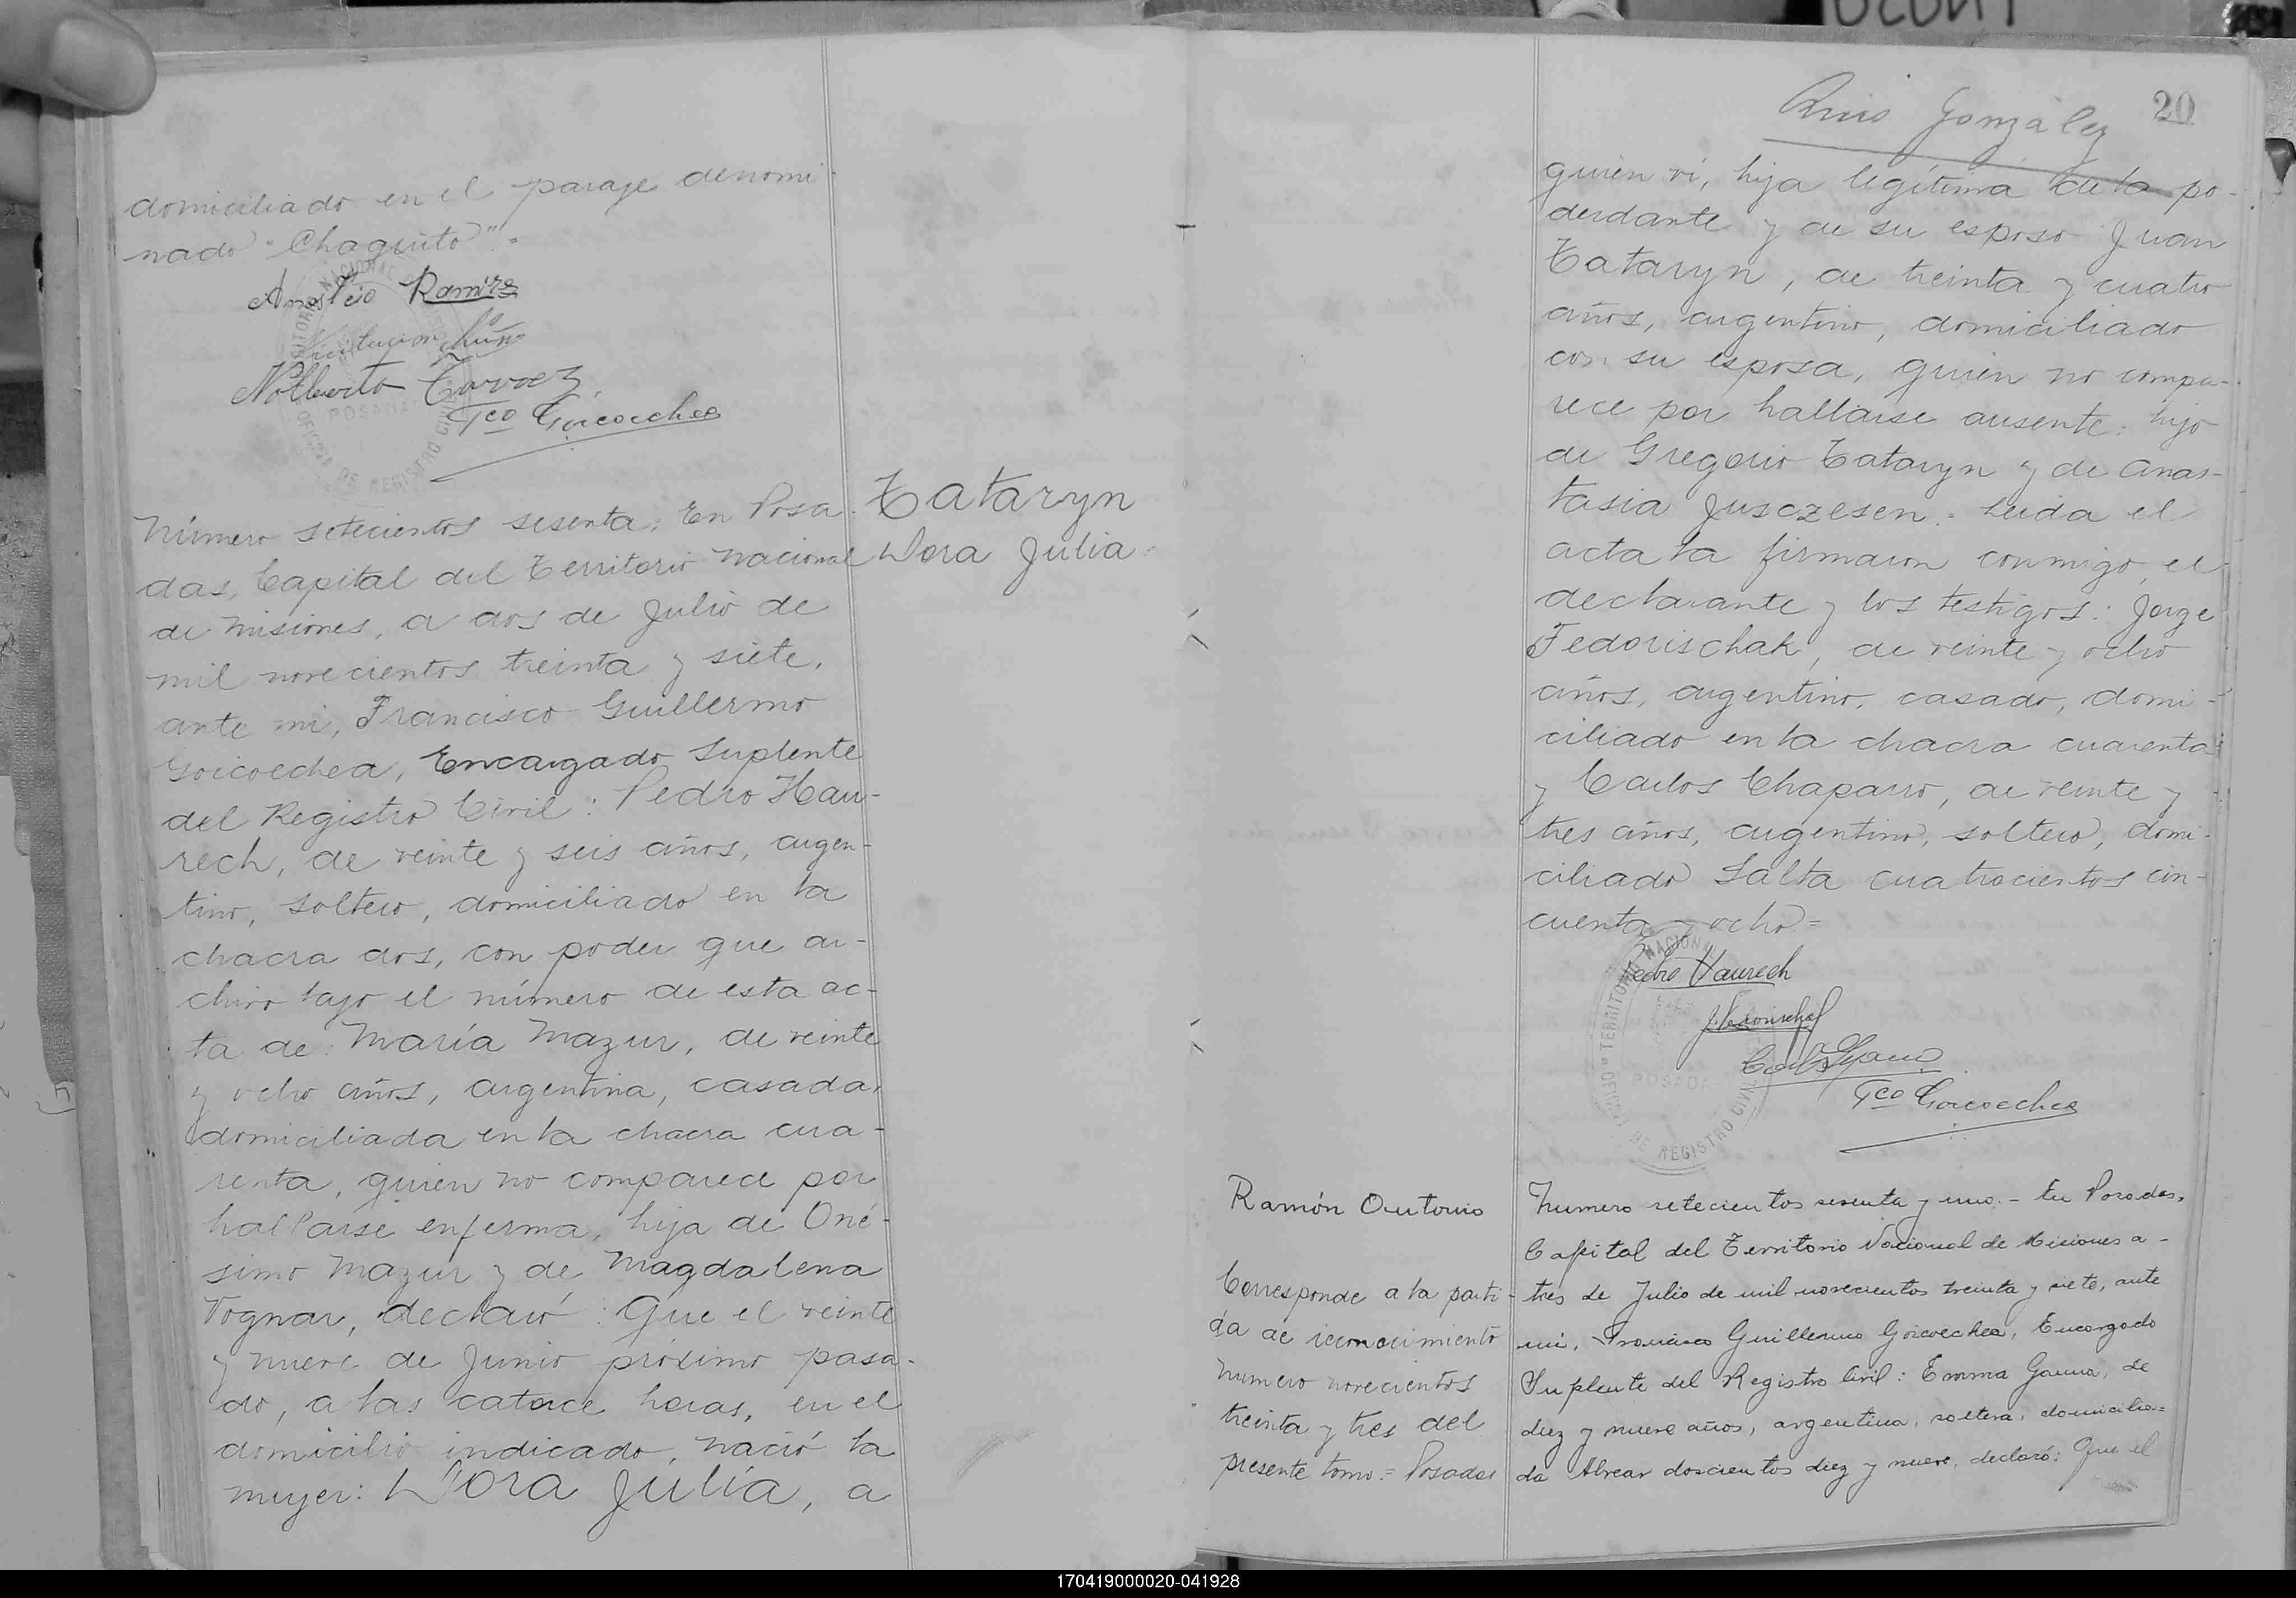 domiciliado en el paraje denomi-
nado "Chaquito".=
Ramirez
Nolberto
Fco Goicoechea
Número setecientos sesenta: En Posa-
das, Capital del Territorio Nacional
de Misiones, a dos de Julio de
mil novecientos treinta y siete,
ante mi, Francisco Guillermo
Goicoechea, Encargado Suplente
del Registro Civil: Pedro Hau-
rech, de veinte y seis años, argen-
tino, soltero, domiciliado en la
chacra dos, con poder que ar-
chivo bajo el número de esta ac-
ta de: María Mazur, de veinte
y ocho años, argentina, casada,
domiciliada en la chacra cua-
renta, quien no comparece por
hallarse enferma, hija de Oné-
simo Mazur y de Magdalena
Tognar, declaró: Que el veinte
y nueve de Junio próximo pasa-
do, a las catorce horas, en el
domicilio indicado, nació la
mujer: Dora Julia, a
Tataryn
Dora Julia=
González
20
quien vi, hija legítima de la po-
derdante y de su esposo Juan
Tataryn, de treinta y cuatro
años, argentino, domiciliado
con su esposa, quien no compa-
rece por hallarse ausente: hijo
de Gregorio Tataryn y de Anas-
tasia Jusczesen.= Leida el
acta la firmaron conmigo, el
declarante y los testigos: Jorge
Fedorischak, de veinte y ocho
años, argentino, casado, domi-
ciliado en la chacra cuarenta
y Carlos Chaparro, de veinte y
tres años, argentino, soltero, domi-
ciliado Salta cuatrocientos cin-
cuenta y ocho=
Pedro Haurech
J. Fedorischak
Fco Goicoechea
OFICINA DE REGISTRO CIVIL
TERRITORIO NACIONAL
POSADAS
Ramón Antonio
Corresponde a la parti-
da de reconocimiento
número novecientos
treinta y tres del
presente tomo.= Posadas
Numero setecientos sesenta y uno.- En Posadas,
Capital del Territorio Nacional de Misiones a-
tres de Julio de mil novecientos treinta y siete, ante
mi, Francisco Guillermo Goicoechea, Encargado
Suplente del Registro Civil: Emma Gauna, de
diez y nueve años, argentina, soltera, domicilia=
da Alvear doscientos diez y nueve, declaró: Que el
170419000020-041928